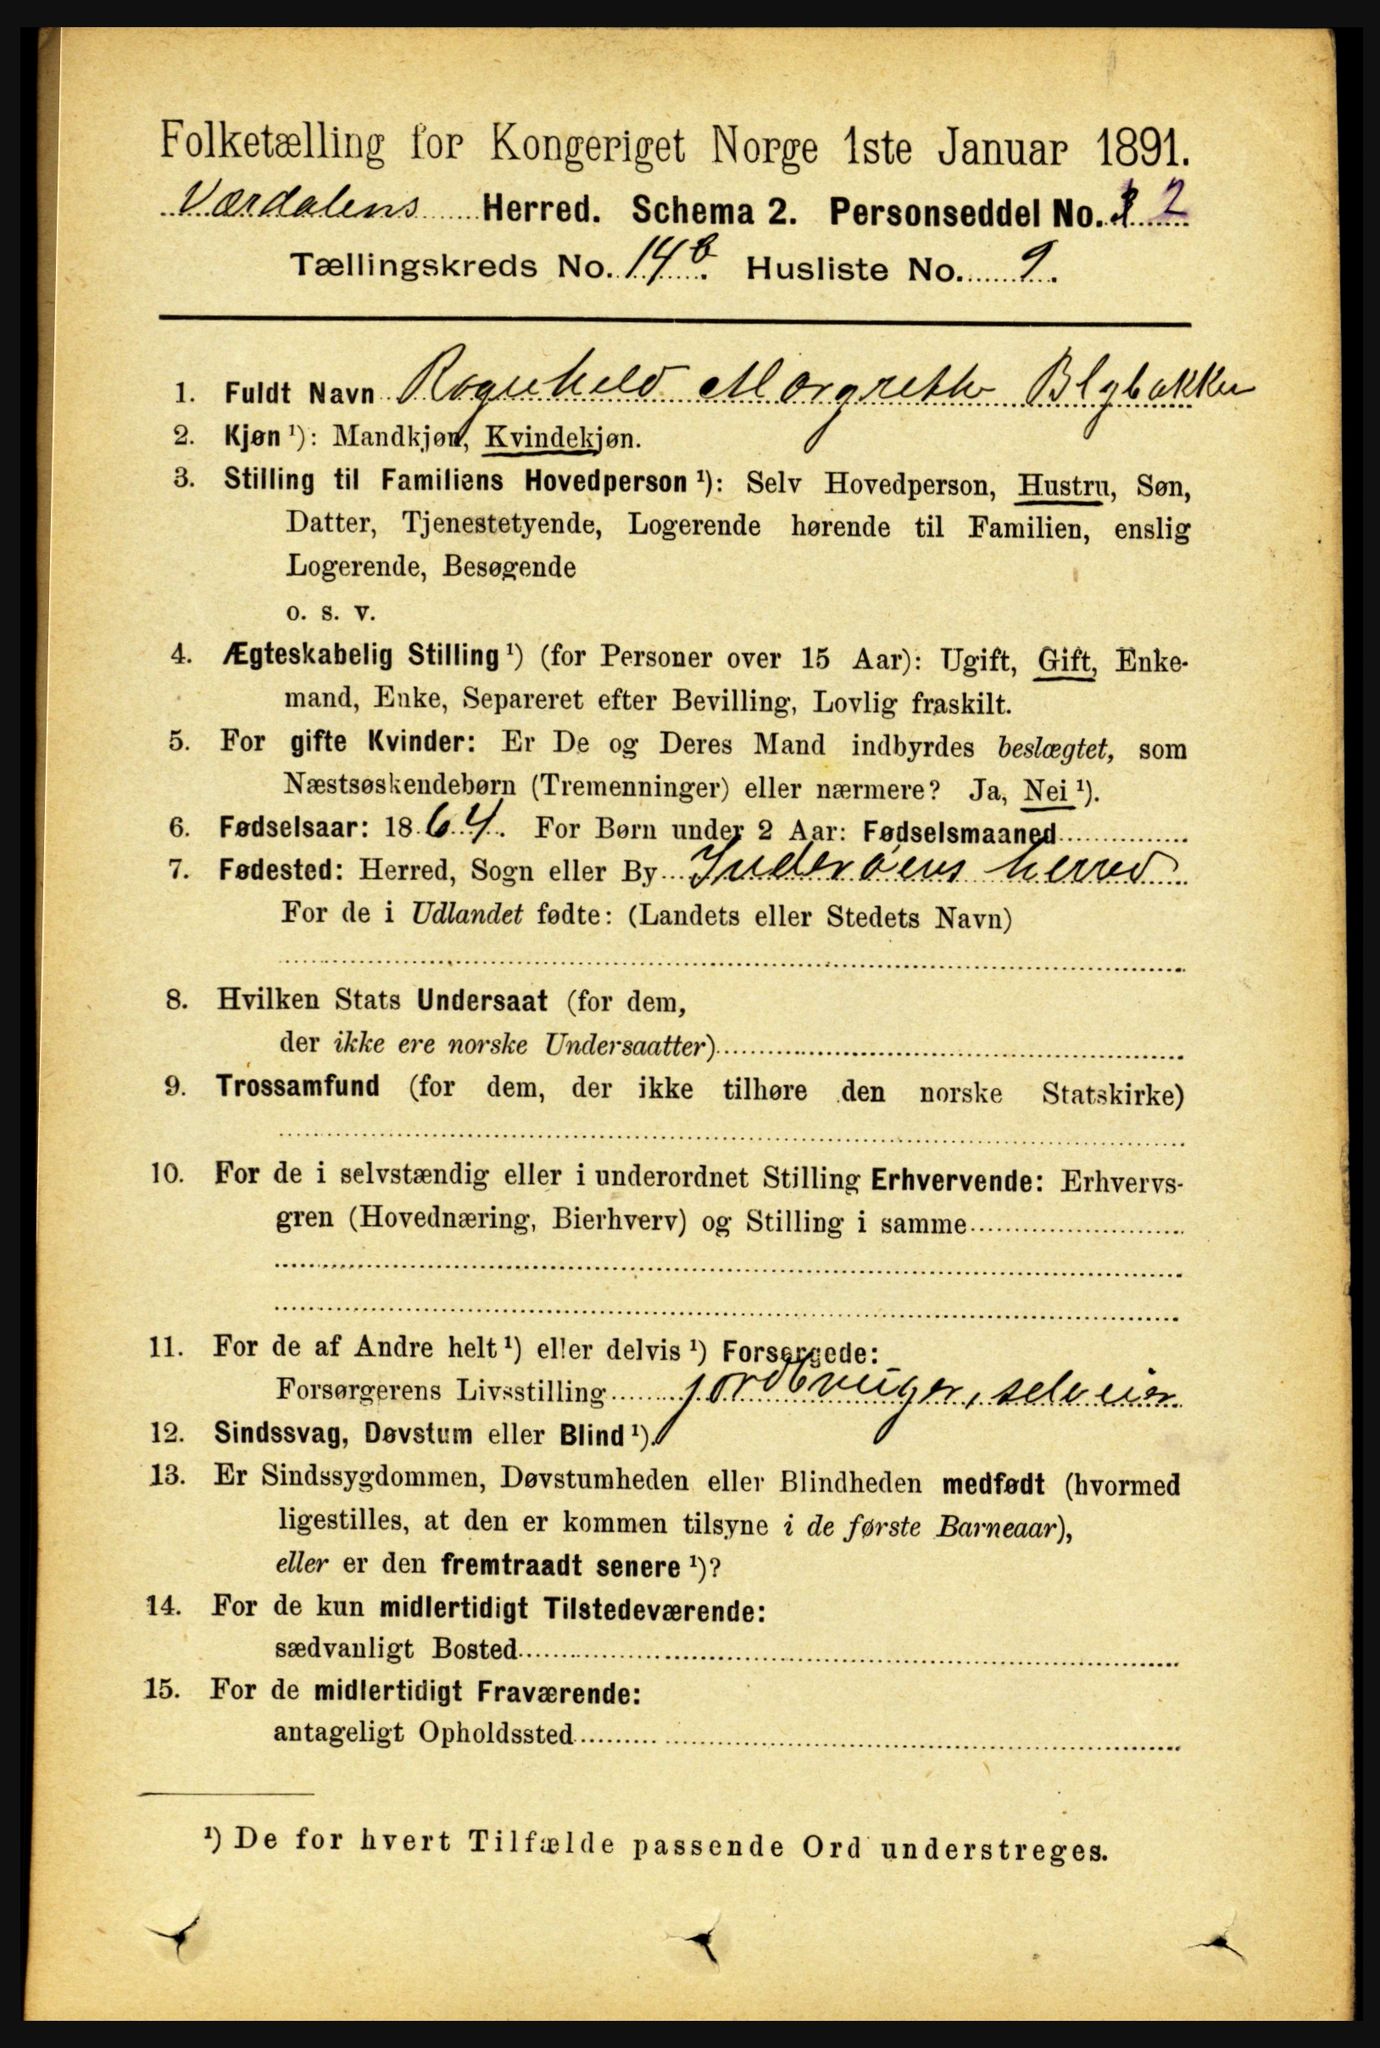 Folketælling for Kongeriget Norge 1ste Januar 1891.
Værdalens Herred. Schema 2. Personseddel No. 2
Tællingskreds No. 14b. Husliste No. 9.
1. Fuldt Navn Ragnhild Margrethe Blybakken
2. Kjøn ¹): Mandkjøn, Kvindekjøn.
3. Stilling til Familiens Hovedperson ¹): Selv Hovedperson, Hustru, Søn,
Datter, Tjenestetyende, Logerende hørende til Familien, enslig
Logerende, Besøgende
o. s. v.
4. Ægteskabelig Stilling ¹) (for Personer over 15 Aar): Ugift, Gift, Enke-
mand, Enke, Separeret efter Bevilling, Lovlig fraskilt.
5. For gifte Kvinder: Er De og Deres Mand indbyrdes beslægtet, som
Næstsøskendebørn (Tremenninger) eller nærmere? Ja, Nei ¹).
6. Fødselsaar: 1864. For Børn under 2 Aar: Fødselsmaaned
7. Fødested: Herred, Sogn eller By Inderøens herred
For de i Udlandet fødte: (Landets eller Stedets Navn)
8. Hvilken Stats Undersaat (for dem,
der ikke ere norske Undersaatter)
9. Trossamfund (for dem, der ikke tilhøre den norske Statskirke)
10. For de i selvstændig eller i underordnet Stilling Erhvervende: Erhvervs-
gren (Hovednæring, Bierhverv) og Stilling i samme
11. For de af Andre helt ¹) eller delvis ¹) Forsørgede:
Forsørgerens Livsstilling jordbruger, selveier
12. Sindssvag, Døvstum eller Blind ¹).
13. Er Sindssygdommen, Døvstumheden eller Blindheden medfødt (hvormed
ligestilles, at den er kommen tilsyne i de første Barneaar),
eller er den fremtraadt senere ¹)?
14. For de kun midlertidigt Tilstedeværende:
sædvanligt Bosted
15. For de midlertidigt Fraværende:
antageligt Opholdssted
¹) De for hvert Tilfælde passende Ord understreges.